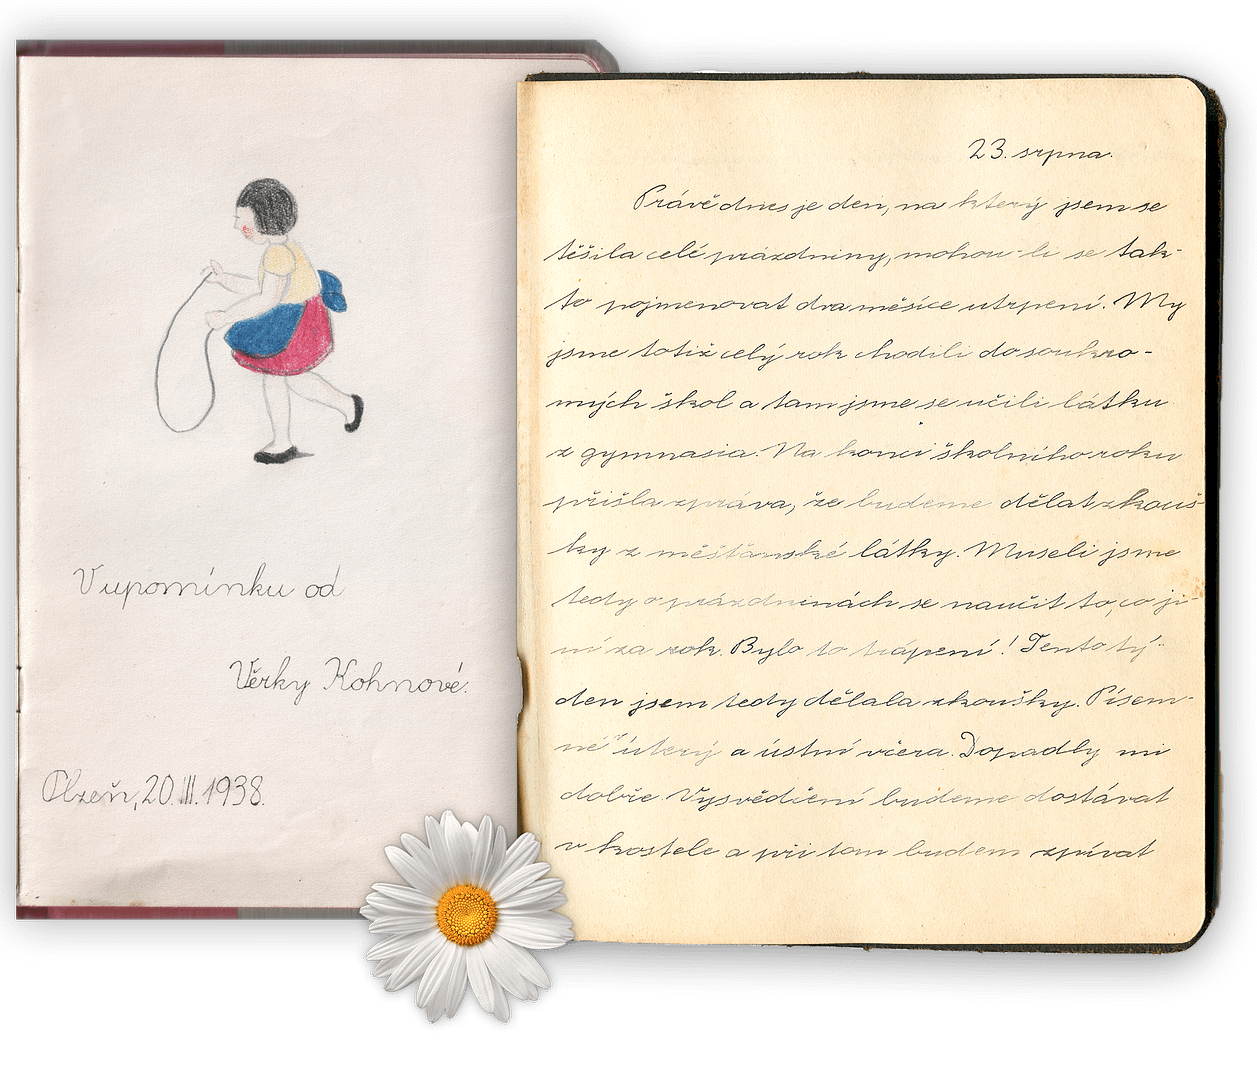 V upomínku od
Věrky Kohnové.
Plzeň, 20.III.1938.
23. srpna.
Právě dnes je den, na který jsem se
těšila celé prázdniny, mohou-li se tak-
to pojmenovat dva měsíce utrpení. My
jsme totiž celý rok chodili do soukro-
mých škol a tam jsme se učili látku
z gymnasia. Na konci školního roku
přišla zpráva, že budeme dělat zkouš-
ky z měšťanské látky. Museli jsme
tedy o prázdninách se naučit to, co ji-
ní za rok. Bylo to trápení! Tento tý-
den jsem tedy dělala zkoušky. Písem-
né úterý a ústní včera. Dopadly mi
dobře. Vysvědčení budeme dostávat
v kostele a při tom budem zpívat